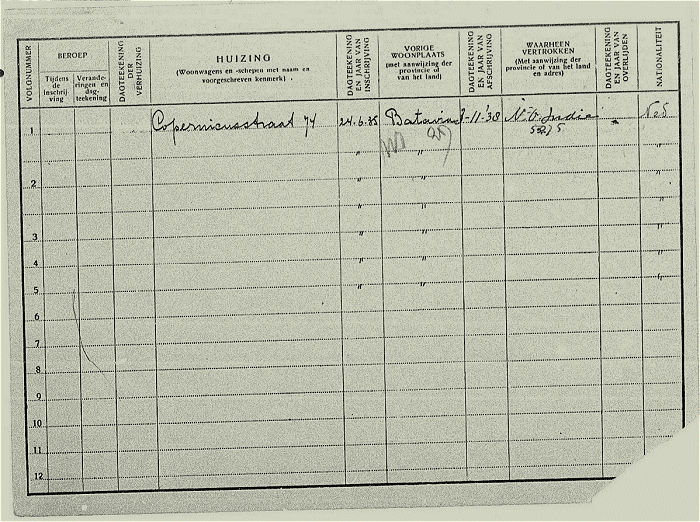 VOLGNUMMER
BEROEP
Tijdens de inschrijving
Veranderingen en dagteekening
DAGTEEKENING DER VERHUIZING
HUIZING
(Woonwagens en -schepen met naam en voorgeschreven kenmerk)
DAGTEEKENING EN JAAR VAN INSCHRIJVING
VORIGE WOONPLAATS
(met aanwijzing der provincie of van het land)
DAGTEEKENING EN JAAR VAN AFSCHRIJVING
WAARHEEN VERTROKKEN
(Met aanwijzing der provincie of van het land en adres)
DAGTEEKENING EN JAAR VAN OVERLIJDEN
NATIONALITEIT
1 Copernicusstraat 74 24-6-35 Batavia -11-'38 N.O. Indie
" " "
2 " " "
3 " " "
4 " " "
5 " " "
6
7
8
9
10
11
12